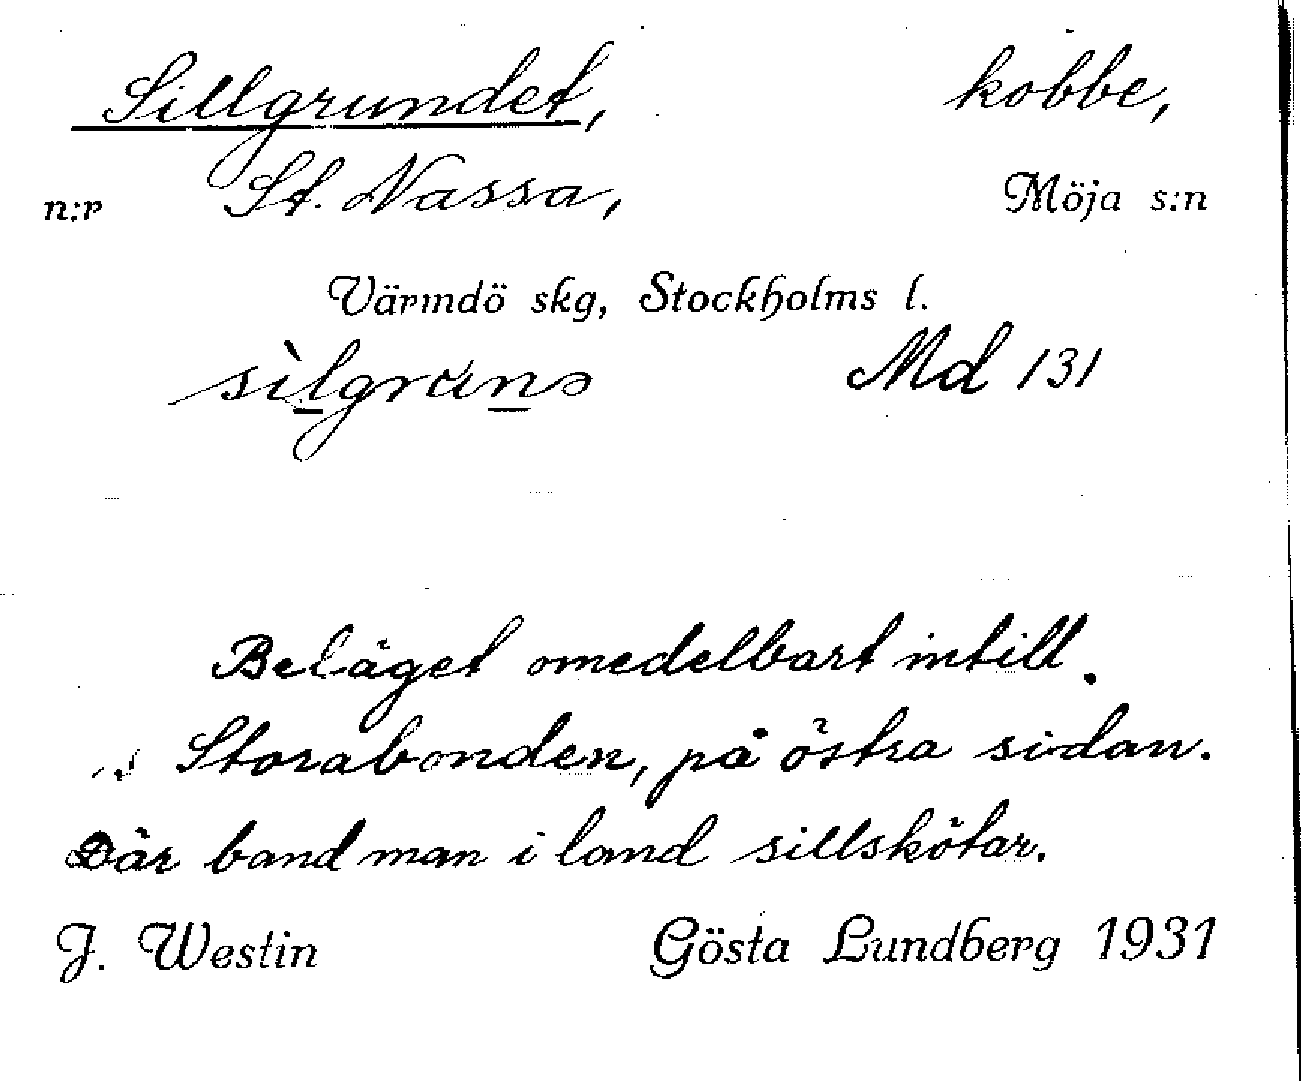 Sillgrundet, kobbe,
n:r St. Nassa, Möja s:n
Värmdö skg, Stockholms l.
sìlgrunə Md 131
Beläget omedelbart intill.
Storabonden, på östra sidan.
Där band man i land sillskötar.
J. Westin Gösta Lundberg 1931